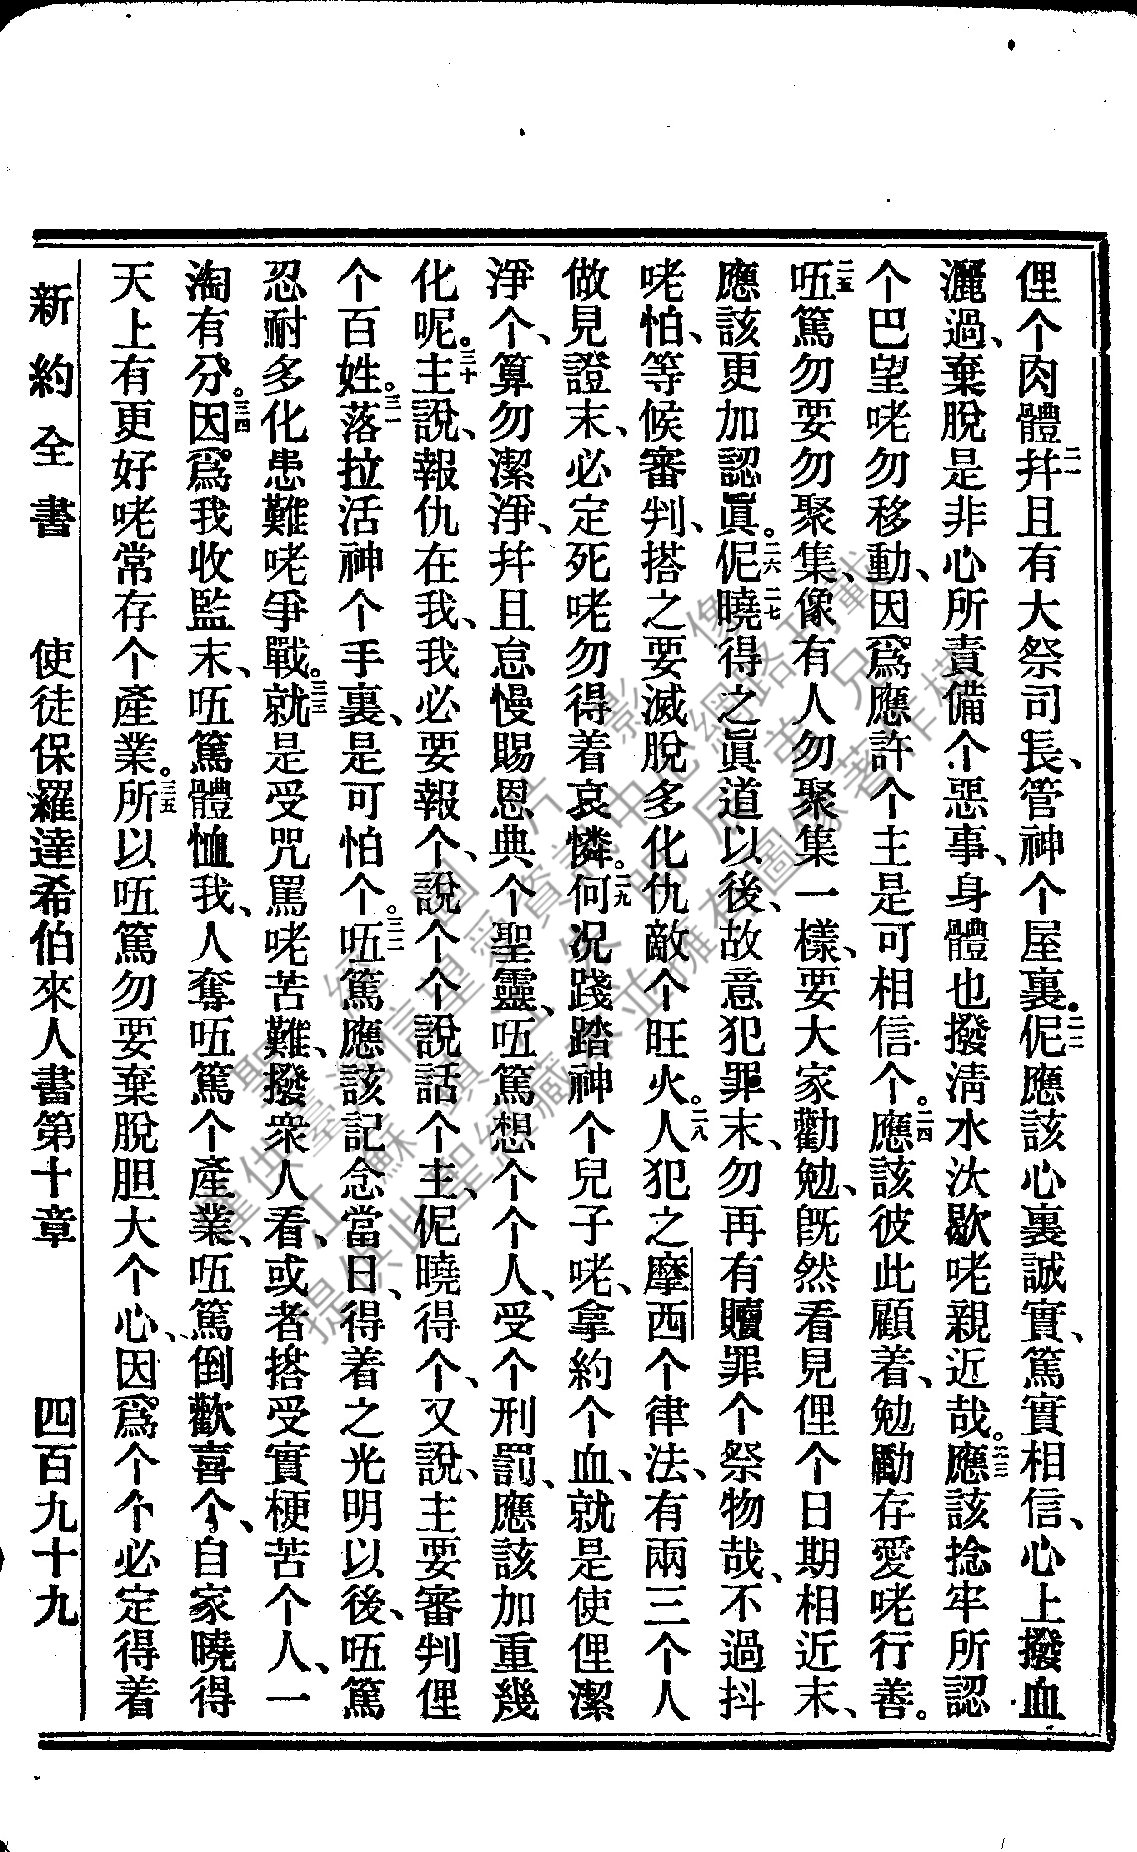 俚个肉體二一幷且有大祭司長、管神个屋裏。二二伲應該心裏誠實、篤實相信、心上撥血
灑過、棄脫是非心所責備个惡事、身體也撥淸水汏歇咾親近哉。二三應該捻牢所認
个巴望咾勿移動、因爲應許个主是可相信个。二四應該彼此顧着、勉勵存愛咾行善。
二五㕶篤勿要勿聚集、像有人勿聚集一樣、要大家勸勉、旣然看見俚个日期相近末、
應該更加認眞。二六伲二七曉得之眞道以後、故意犯罪末、勿再有贖罪个祭物哉、不過抖
咾怕、等候審判、搭之要滅脫多化仇敵个旺火。二八人犯之摩西个律法、有兩三个人
做見證末、必定死咾勿得着哀憐。二九何况踐踏神个兒子咾、拿約个血、就是使俚潔
淨个、算勿潔淨、幷且怠慢賜恩典个聖靈、㕶篤想个个人、受个刑罰、應該加重幾
化呢。三十主說、報仇在我、我必要報个、說个个說話个主、伲曉得个、又說、主要審判俚
个百姓。三一落拉活神个手裏、是可怕个。三二㕶篤應該記念當日、得着之光明以後、㕶篤
忍耐多化患難咾爭戰。三三就是受咒罵咾苦難、撥衆人看、或者搭受實梗苦个人、一
淘有分。三四因爲我收監末、㕶篤體恤我、人奪㕶篤个產業、㕶篤倒歡喜个、自家曉得
天上有更好咾常存个產業。三五所以㕶篤勿要棄脫胆大个心、因爲个个必定得着
新約全書 使徒保羅達希伯來人書第十章 四百九十九
聖經圖片影像
僅供臺灣信望愛資訊中心網路刊載